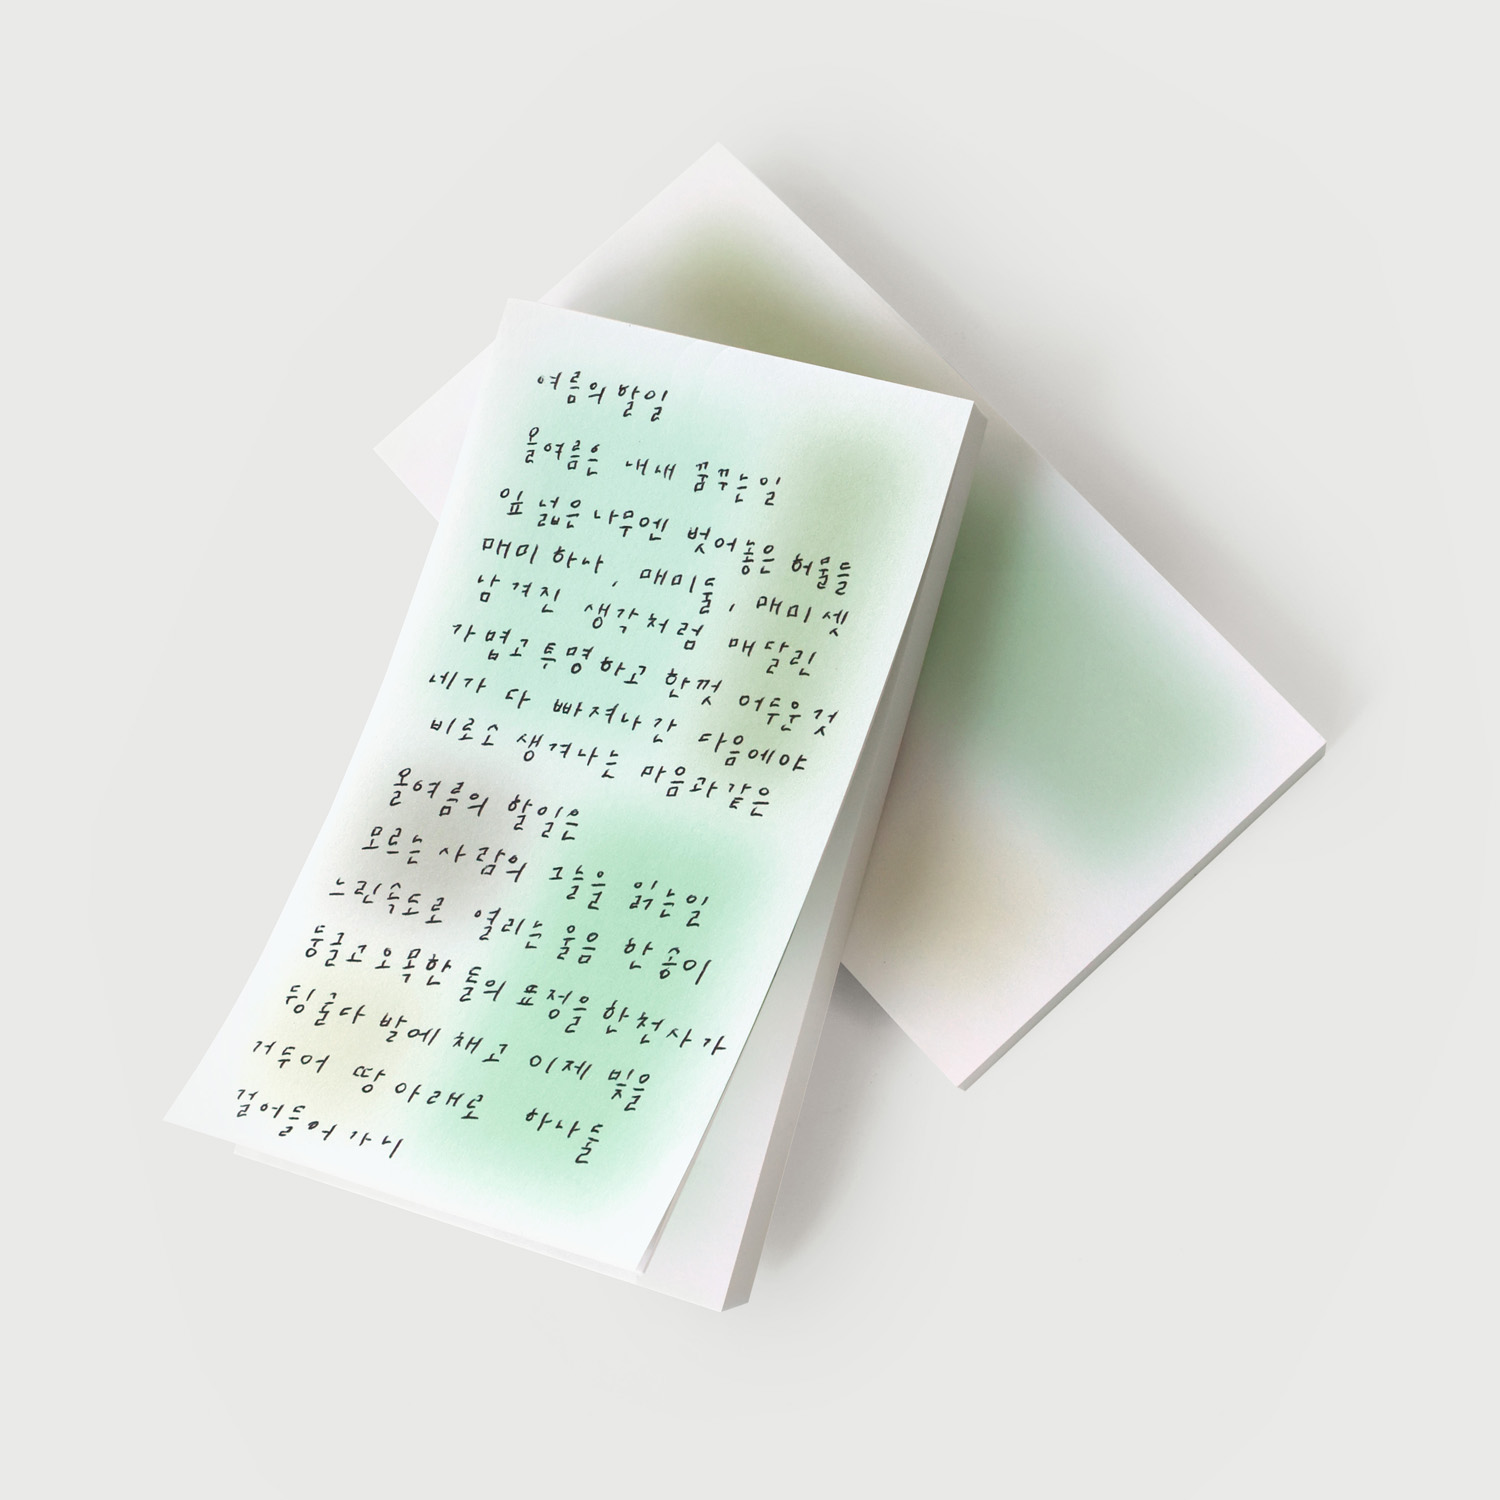 여름의 할일
올여름은 내내 꿈꾸는 일
잎 넓은 나무엔 벗어놓은 허물들
매미 하나, 매미 둘, 매미 셋
남겨진 생각처럼 매달린
가볍고 투명하고 한껏 어두운 것
네가 다 빠져나간 다음에야
비로소 생겨나는 마음과 같은
올여름의 할일은
모르는 사람의 그늘을 읽는 일
느린 속도로 열리는 울음 한 송이
둥글고 오목한 돌의 표정을 한 천사가
뒹굴다 발에 채고 이제 빛을
거두어 땅 아래로 하나둘
걸어들어가니